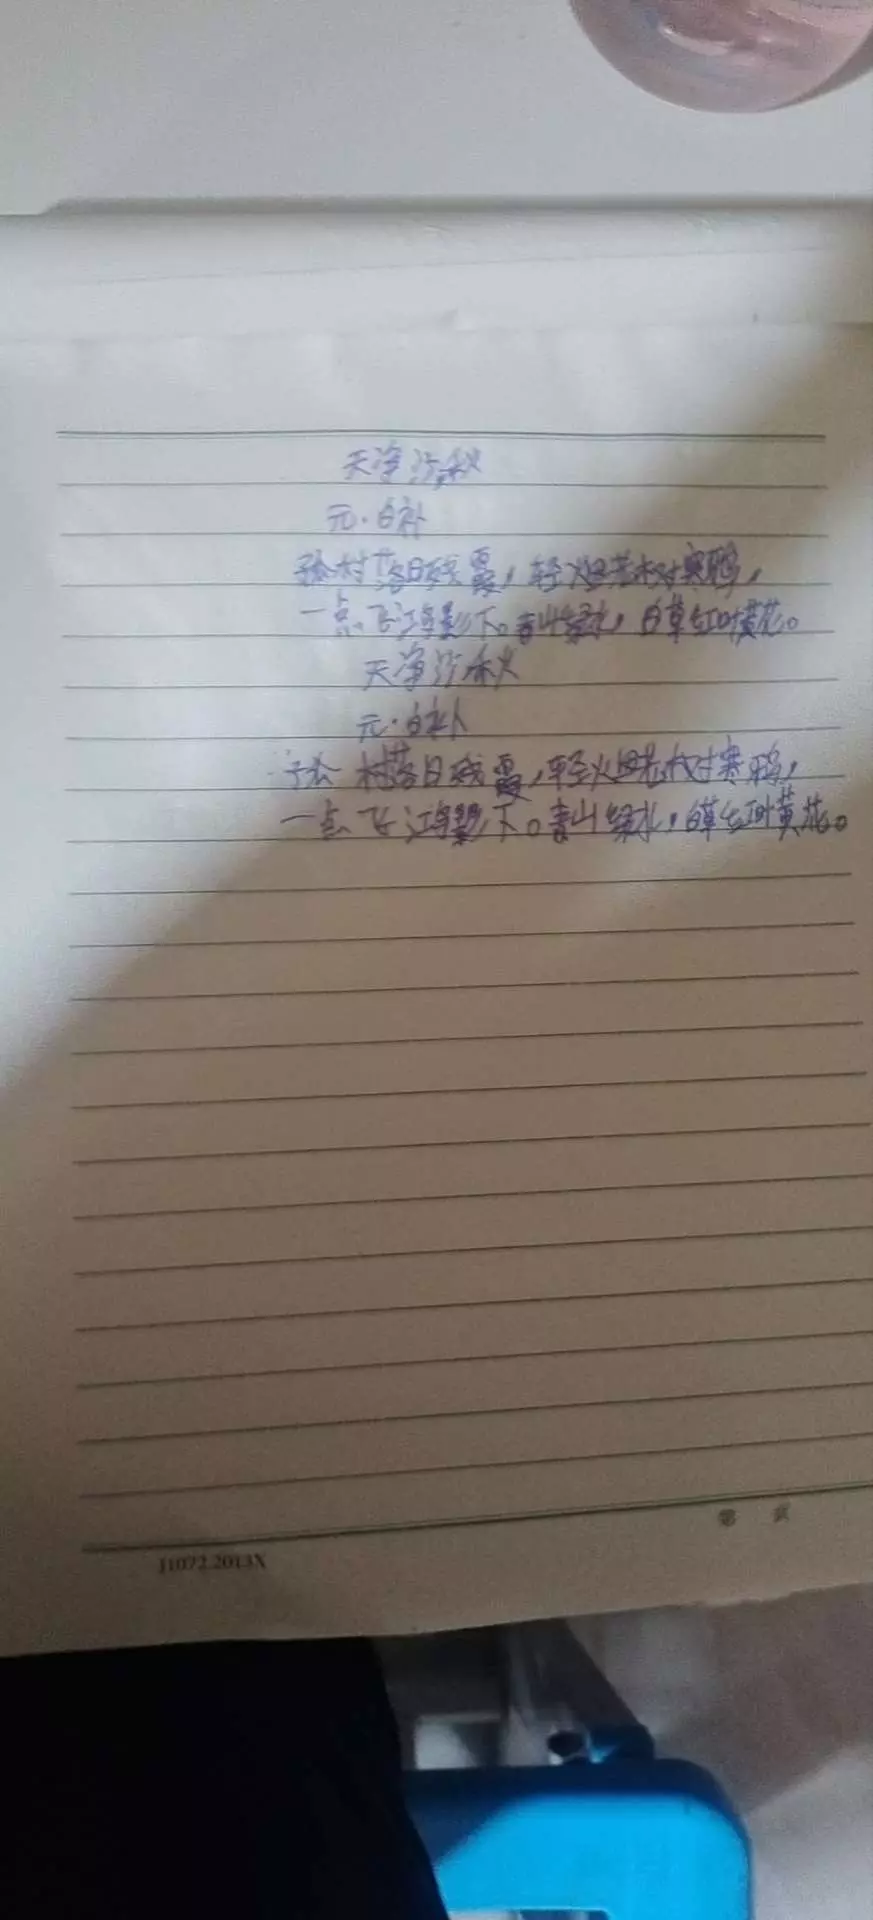 天净沙秋
元·白补
孤村落日残霞，轻烟老树寒鸦，
一点飞鸿影下。青山绿水，白草红叶黄花。
天净沙秋
元·白朴
孤村落日残霞，轻烟老树寒鸦，
一点飞鸿影下。青山绿水，白草红叶黄花。
第 页
J1072.2013X